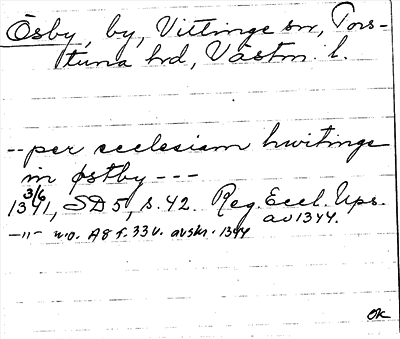 Ösby, by, Vittinge sn, Tors-
tuna hd, Västm. l.
-- per ecclesiam hwitinge
in østby ---
1341 3/6, SD 5, s. 42. Reg. Eccl. Ups.
av 1344.
—"— n.o. A 8 f. 33 v. avskr. 1344
OK